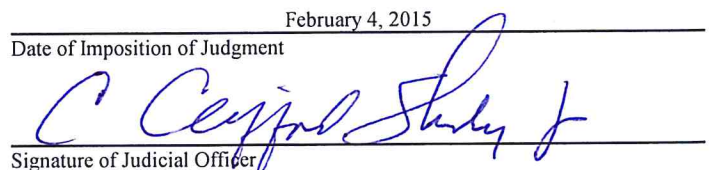 February 4, 2015
Date of Imposition of Judgment
C Clifford Shirley Jr
Signature of Judicial Officer